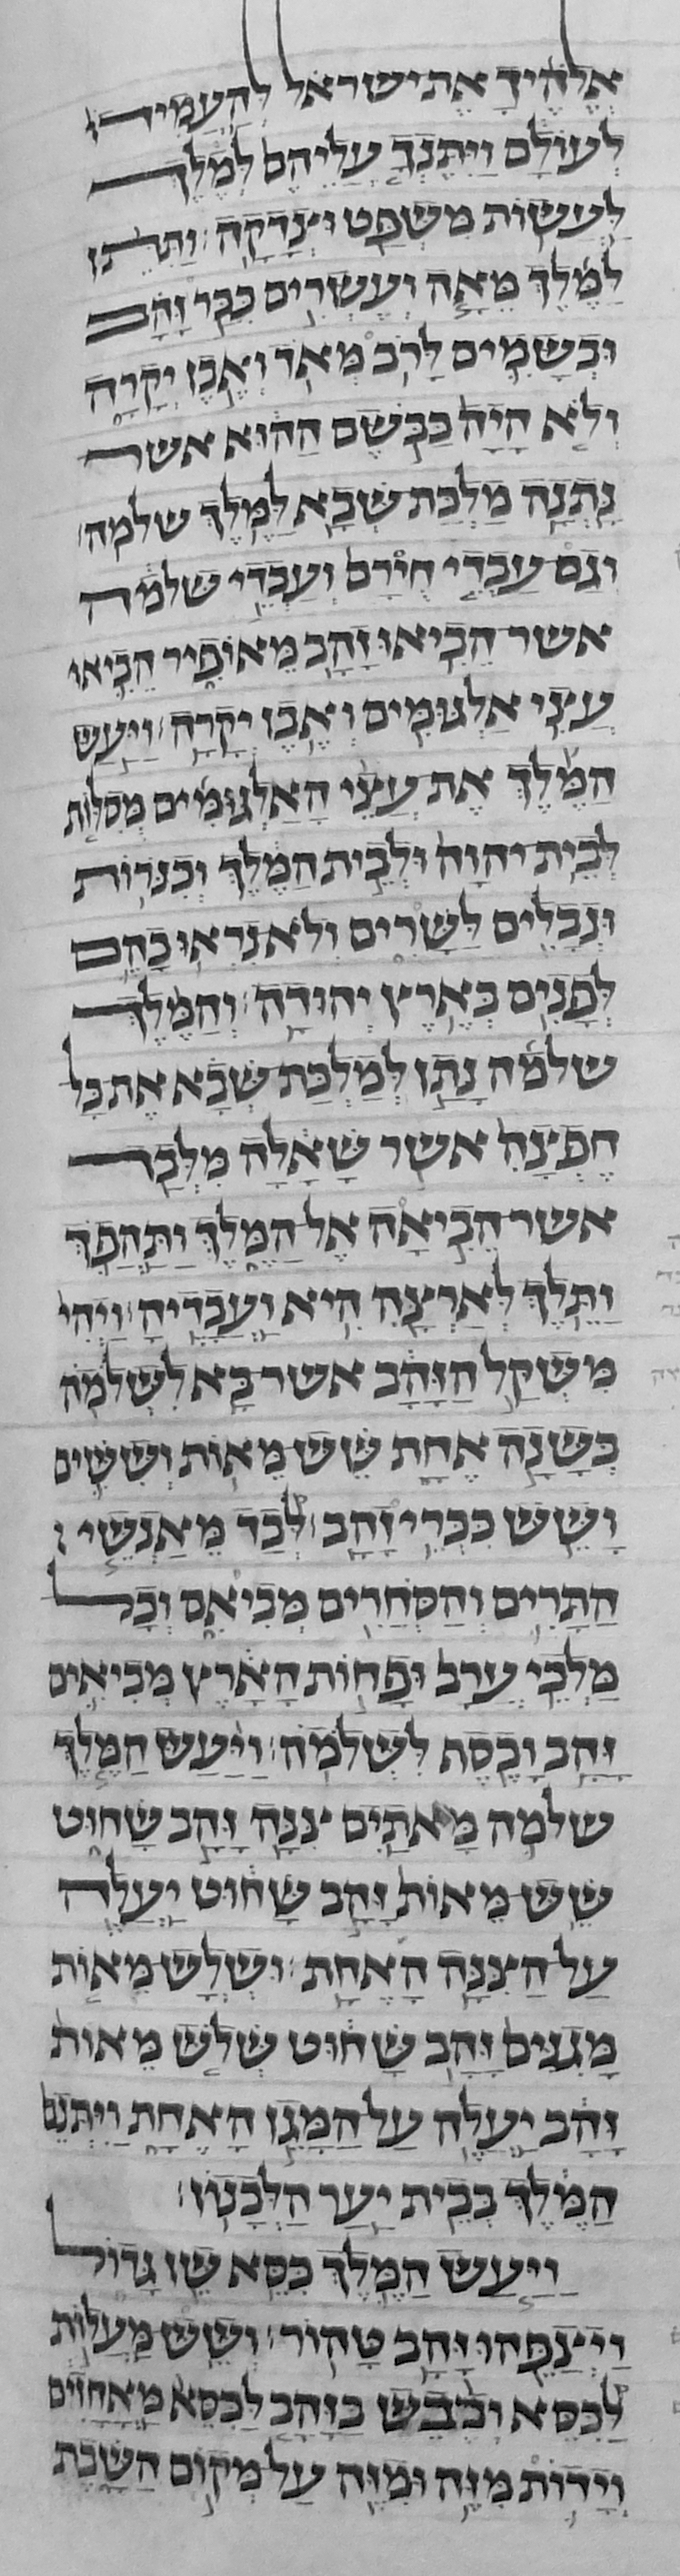 אֱלֹהֶיךָ אֶת ישראל לְהַעֲמִידוֹ
לְעוֹלָם וַיִּתֶּנְךָ עֲלֵיהֶם לְמֶלֶךְ
לַעֲשׂוֹת מִשְׁפָּט וּצְדָקָה׃ וַתִּתֵּן
לַמֶּלֶךְ מֵאָה וְעֶשְׂרִים כִּכַּר זָהָב
וּבְשָׂמִים לָרֹב מְאֹד וְאֶבֶן יְקָרָה
וְלֹא הָיָה כַּבֹּשֶׂם הַהוּא אשר
נָתְנָה מַלְכַּת שְׁבָא לַמֶּלֶךְ שלמה׃
וְגַם עַבְדֵי חִירָם וְעַבְדֵי שלמה
אשר הֵבִיאוּ זָהָב מֵאוֹפִיר הֵבִיאוּ
עֲצֵי אַלְגּוּמִּים וְאֶבֶן יְקָרָה׃ וַיַּעַשׂ
הַמֶּלֶךְ אֶת עֲצֵי הָאַלְגּוּמִּים מְסִלּוֹת
לְבֵית יהוה וּלְבֵית הַמֶּלֶךְ וְכִנֹּרוֹת
וּנְבָלִים לַשָּׁרִים וְלֹא נִרְאוּ כָהֵם
לְפָנִים בְּאֶרֶץ יְהוּדָה׃ וְהַמֶּלֶךְ
שלמה נָתַן לְמַלְכַּת שְׁבָא אֶת כָּל
חֶפְצָהּ אשר שָׁאָלָה מִלְּבַד
אשר הֵבִיאָה אֶל הַמֶּלֶךְ וַתַּהֲפֹךְ
וַתֵּלֶךְ לְאַרְצָהּ הִיא וַעֲבָדֶיהָ׃ וַיְהִי
מִשְׁקַל הַזָּהָב אשר בָּא לִשְׁלֹמֹה
בְּשָׁנָה אֶחָת שֵׁשׁ מֵאוֹת וְשִׁשִּׁים
וָשֵׁשׁ כִּכְּרֵי זָהָב׃ לְבַד מֵאַנְשֵׁי
הַתָּרִים וְהַסֹּחֲרִים מְבִיאִם וְכָל
מַלְכֵי עֲרָב וּפַחוֹת הָאָרֶץ מְבִיאִים
זָהָב וָכֶסֶף לִשְׁלֹמֹה׃ וַיַּעַשׂ הַמֶּלֶךְ
שלמה מָאתַיִם צִנָּה זָהָב שָׁחוּט
שֵׁשׁ מֵאוֹת זָהָב שָׁחוּט יַעֲלֶה
עַל הַצִּנָּה הָאֶחָת׃ וּשְׁלֹשׁ מֵאוֹת
מָגִנִּים זָהָב שָׁחוּט שְׁלֹשׁ מֵאוֹת
זָהָב יַעֲלֶה עַל הַמָּגֵן הָאֶחָת וַיִּתְּנֵם
הַמֶּלֶךְ בְּבֵית יַעַר הַלְּבָנוֹן׃
וַיַּעַשׂ הַמֶּלֶךְ כִּסֵּא שֵׁן גָּדוֹל
וַיְצַפֵּהוּ זָהָב טָהוֹר׃ וְשֵׁשׁ מַעֲלוֹת
לַכִּסֵּא וְכֶבֶשׁ בַּזָּהָב לַכִּסֵּא מָאֳחָזִים
וְיָדוֹת מִזֶּה וּמִזֶּה עַל מְקוֹם הַשָּׁבֶת